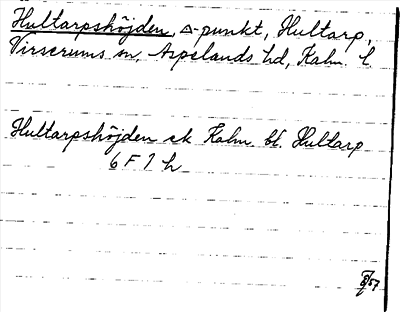 Hultarpshöjden, △-punkt, Hultarp,
Virserums sn, Aspelands hd, Kalm. l.
Hultarpshöjden ek Kalm. bl. Hultarp
6 F 7 h